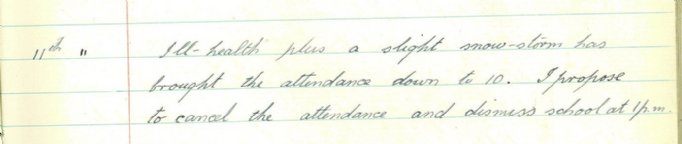 11th " Ill-health plus a slight snow-storm has
brought the attendance down to 10. I propose
to cancel the attendance and dismiss school at 1p.m.